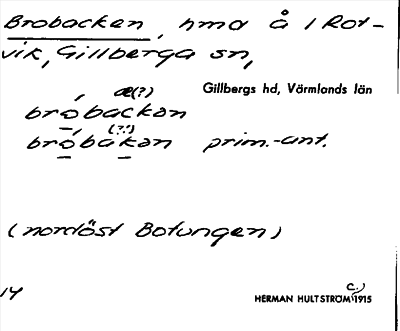 Brobacken, hmd å / Rot-
vik, Gillberga sn,
Gillbergs hd, Värmlands län
æ(?)
bróbackan
(?!)
bróbakan prim.-ant.
(nordöst Botungen)
14
c.)
HERMAN HULTSTRÖM 1915